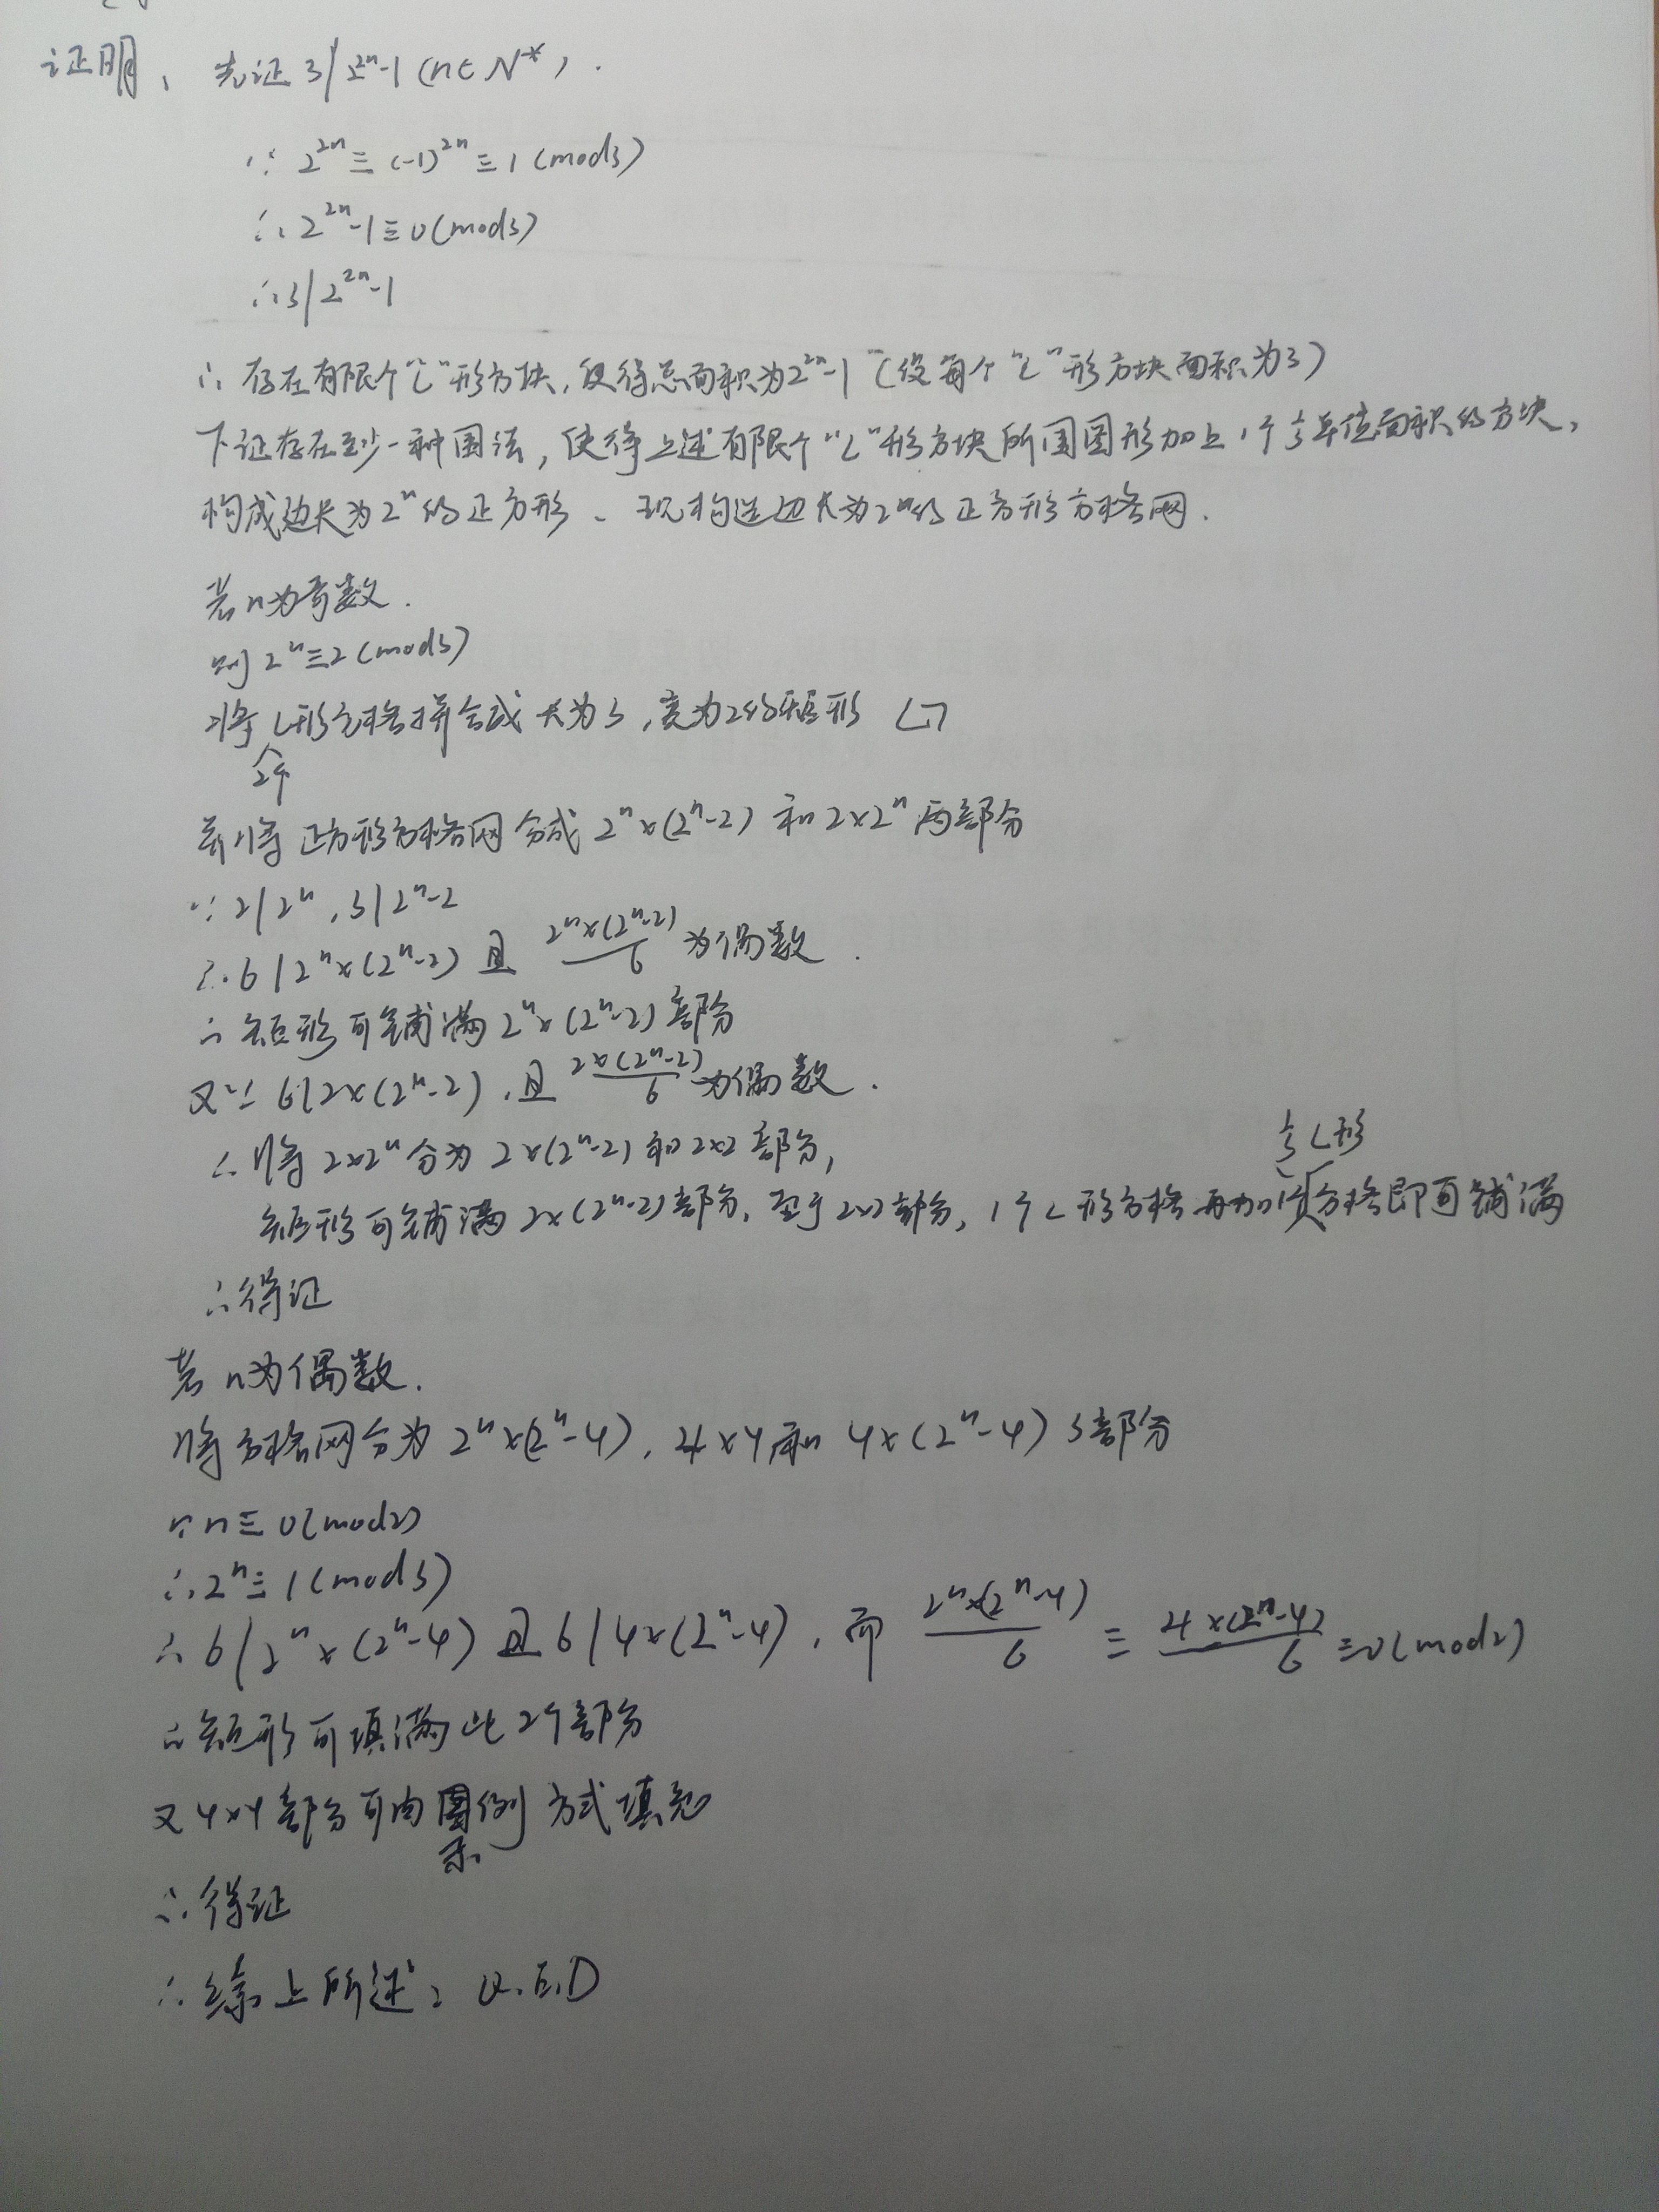 证明、先证 3|2²ⁿ-1 (n∈N*).
∵ 2²ⁿ≡(-1)²ⁿ≡1 (mod3)
∴ 2²ⁿ-1≡0 (mod3)
∴ 3|2²ⁿ-1
∴ 存在有限个"L"形方块,使得总面积为2²ⁿ-1 (设每个"L"形方块面积为3)
下证存在至少一种围法,使得上述有限个"L"形方块所围图形加上1个⅓单位面积的方块,
构成边长为2ⁿ的正方形、现构造边长为2ⁿ的正方形方格网.
若n为奇数.
则 2ⁿ≡2 (mod3)
将2个L形方格拼合成长为3,宽为2的矩形
并将正方形方格网分成 2ⁿ×(2ⁿ-2) 和 2×2ⁿ 两部分
∵ 2|2ⁿ, 3|2ⁿ-2
∴ 6|2ⁿ×(2ⁿ-2) 且 2ⁿ×(2ⁿ-2)/6 为偶数.
∴ 矩形可铺满 2ⁿ×(2ⁿ-2) 部分
又∵ 6|2×(2ⁿ-2), 且 2×(2ⁿ-2)/6 为偶数.
∴ 将 2×2ⁿ 分为 2×(2ⁿ-2) 和 2×2 部分,
矩形可铺满 2×(2ⁿ-2) 部分, 至于2×2部分, 1个L形方格再加1个⅓L形方格即可铺满
∴得证
若n为偶数.
将方格网分为 2ⁿ×(2ⁿ-4), 4×4 和 4×(2ⁿ-4) 3部分
∵ n≡0(mod2)
∴ 2ⁿ≡1(mod3)
∴ 6|2ⁿ×(2ⁿ-4) 且 6|4×(2ⁿ-4), 而 2ⁿ×(2ⁿ-4)/6 ≡ 4×(2ⁿ-4)/6 ≡0(mod2)
∴ 矩形可填满此2个部分
又4×4部分可由图示例方式填充
∴得证
∴综上所述, Q.E.D